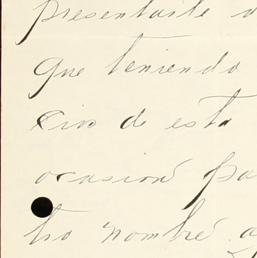 presentarte a
que teniendo
cios de esta
ocasión pa
tro nombre a